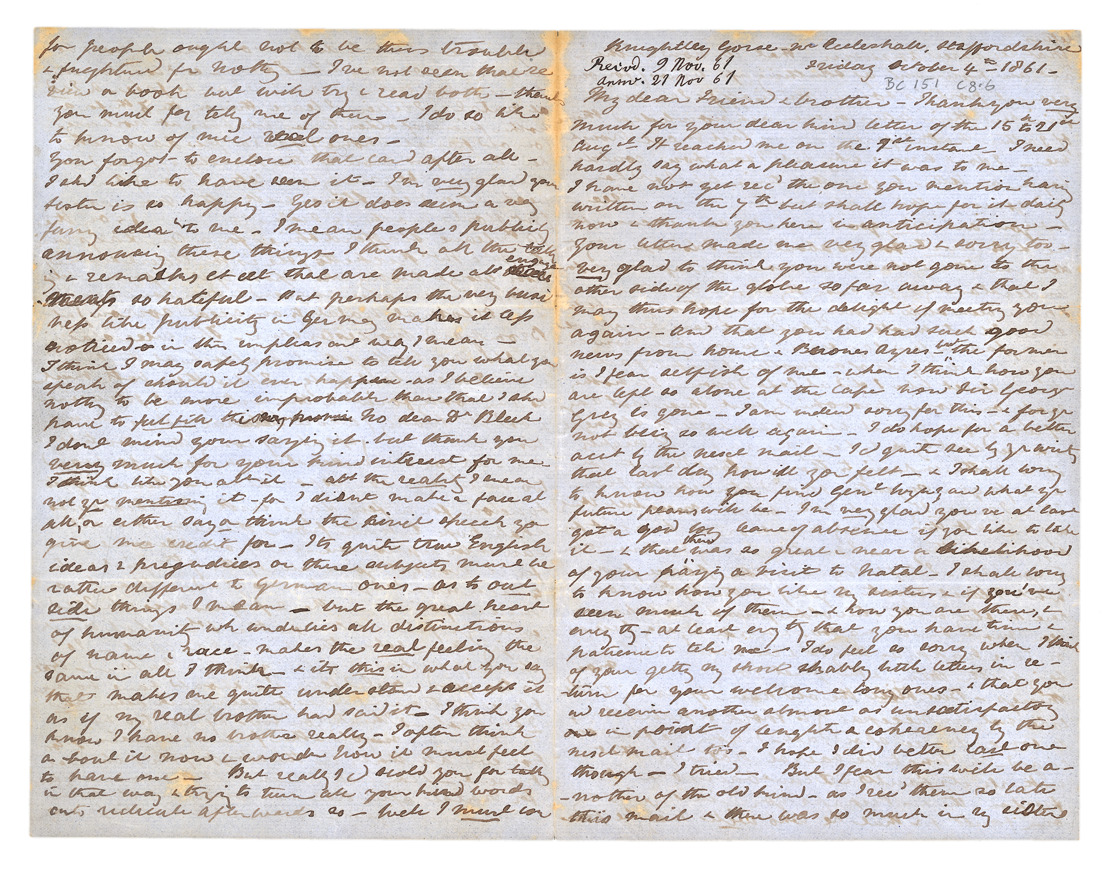 Knightley Gorse - nr Eccleshall, Staffordshire
Recvd. 9 Nov. 61
Friday October 4th 1861-
answ. 21 Nov 61
BC 151 C8.6
My dear Friend & brother - Thank you very
much for your dear kind letter of the 15 to 21st
Augst. It reached me on the instant - I need
hardly say what a pleasure it was to me -
I have not yet recd the one you mention having
written on the 7th but shall hope for it daily
now & thank you here in anticipation -
Your letters made me very glad & sorry too -
very glad to think you were not gone to the
other side of the globe so far away & that I
may thus hope for the delight of meeting you
again - and that you had had such good
news from home & Buenos Ayres the former
is I fear selfish of me - when I think how you
are left so alone at the cape now Sir George
Grey is gone - I am indeed sorry for this - & for yr
not being so well again - I do hope for a better
acct by the next mail - I'd quite see by yr writing
that last day how ill you felt - & I shall long
to know how you find Genl Wynyard what yr
future plans will be - I'm very glad you've at last
got a good long leave of absence if you like to take
it - & that there was so great & near a likelihood
of your paying a visit to Natal - I shall long
to know how you like my sisters & if you've
seen much of them - & how you are there, &
every th - at least every th that you have time &
patience to tell me - I do feel so sorry when I think
of your getting my short shabby letters in re-
turn for your welcome long ones - & that you
wd receive another almost as unsatisfactory
one in point of lenght & coherency by the
next mail too - I hope I did better last one
though - I tried - But I fear this will be a-
nother of the old kind - as I recd them so late
this mail & there was so much in my sisters
for people ought not to be thus trouble
& frightened for nothg - I've not seen that re
view a book but will try & read both - thank
you must for tellg me of them - I do so like
to know of nice real ones -
You forgot to enclose that card after all -
I shd like to have seen it - I'm very glad your
sister is so happy - Yes it does seem a very
funny idea to me - I mean people's publicly
announcing these things - I think all the talk
engage
& remarks et cet that are made abt
so hateful - But perhaps the very busi
ness like publicity in Germany makes it less
noticed in this unpleasant way I mean -
I think I may safely promise to tell you what you
speak of should it ever happen - as I believe
nothg to be more improbable than that I shd
have to fulfil this my promise No dear Dr Bleek
I dont mind your saying it - but thank you
very much for your kind interest for me
I think like you abt it - abt the reality I mean
not yr mentiong it - for I didnt make a face at
all, or either say or think the civil speech you
give me credit for - Its quite true English
ideas & prejudices on these subjects must be
rather different to German ones - as to out
side things I mean - but the great heart
of humanity wh underlies all distinctions
of name & race - makes the real feeling the
same in all I think - & its this in what you say
that makes me quite understand & accept it
as if my real brother had said it - I think you
know I have no brother really - I often think
a-bout it now & wonder how it must feel
to have one - But really I'd scold you for talkg
in that way & tryg to turn all your kind words
into ridicule afterwards so - Well I must con